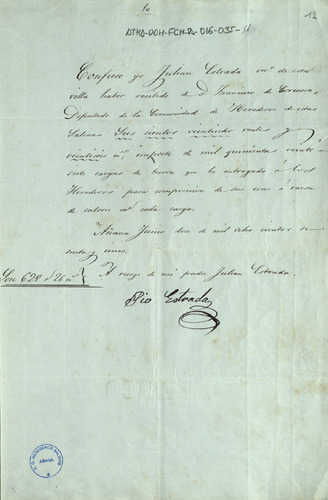 10
12
ATHA-DOH-FCH-P2-016-035-11
Confieso yo Julian Estrada vno de esta
villa haber recibido de D. Francisco de
Diputado de la Comunidad de Herederos de estas
Salinas Seis cientos veintiocho reales y
importe de mil quinientas veinti
siete cargas de tierra que ha entregado a
Herederos para composicion de sus eras á razon
de catorce ms cada carga.
Añana Junio dos de mil ocho cientos se
senta y cinco.
Son 628 r 26 ms
A ruego de mi padre Julian Estrada.
Pio Estrada
AÑANA